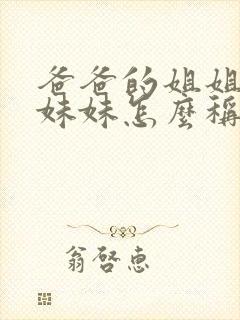 爸爸的姐姐
妹妹怎麼稱
翁啓惠